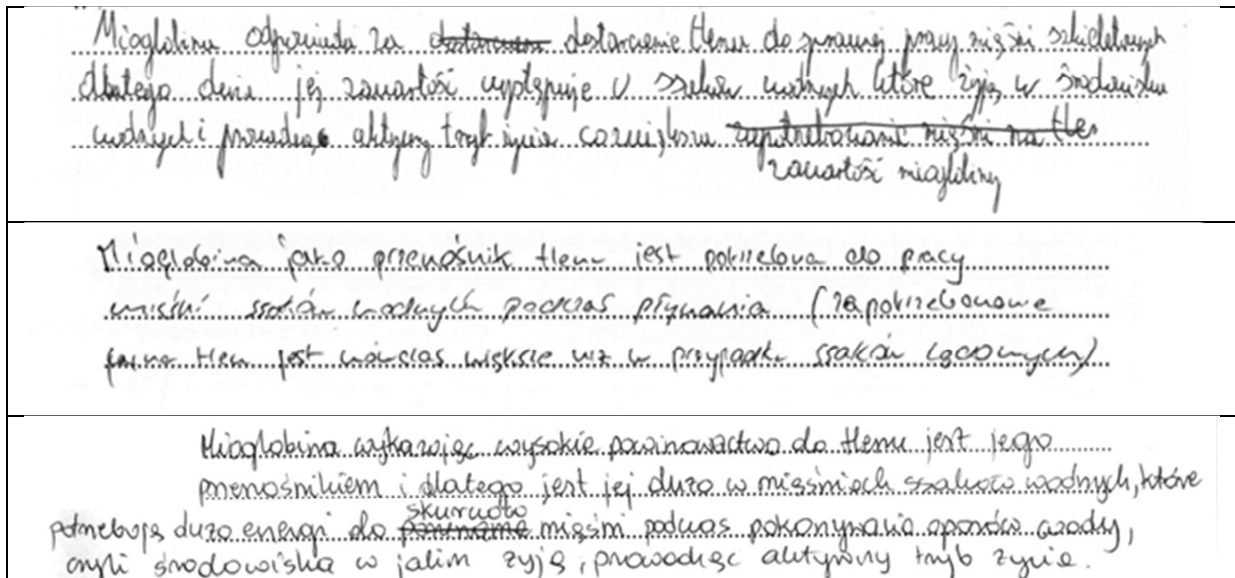 Mioglobina odpowiada za dostarczenie dostarczenie tlenu do sprawnej pracy mięśni szkieletowych
dlatego duża jej zawartość występuje u ssaków wodnych które żyją w środowisku
wodnych i prowadzą aktywny tryb życia zapotrzebowanie mięśni na tlen
zawartość mioglobiny
Mioglobina jako przenośnik tlenu jest potrzebna do pracy
mięśni ssaków wodnych podczas pływania (zapotrzebowanie
na tlen jest wówczas większe niż w przypadku ssaków lądowych)
Mioglobina wykazując wysokie powinowactwo do tlenu jest jego
przenośnikiem i dlatego jest jej dużo w mięśniach ssaków wodnych, które
skurczów
potrzebują dużo energi do mięśni podczas pokonywania oporów wody,
czyli środowiska w jakim żyją, prowadząc aktywny tryb życia.